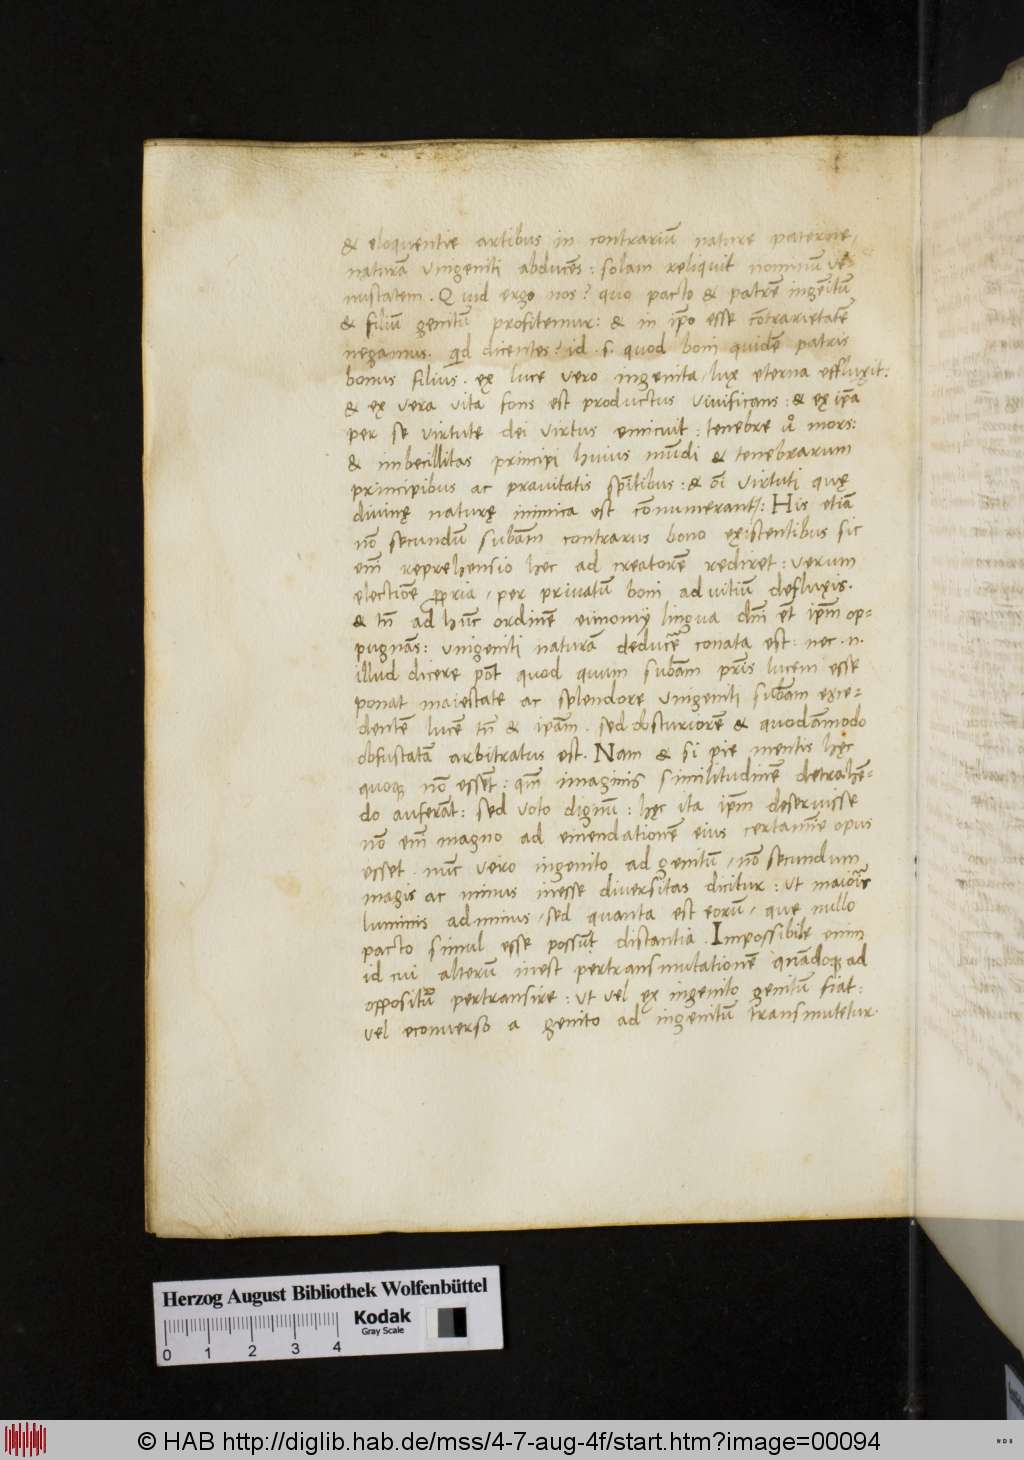 & eloquentie artibus in contrariũ nature paterne,
naturã vnigeniti abducẽs : solam reliquit nominũ ve-
nustatem. Quid ergo nos? quo pacto & patrẽ ingẽitũ
& filiũ genitũ profitemur: & in ip̃o esse cõtrarietatẽ
negamus. qd dicentes? id .s. quod boni quidẽ patris
bonus filius. ex luce vero ingenita, lux eterna effluxit:
& ex vera vita fons est productus viuificans: & ex ip̃a
per se virtute dei virtus emicuit: tenebre mors:
& imbecillitas principi huius mũdi & tenebrarum
principibus ac prauitatis sp̃itibus: & oĩ virtuti quę
diuinę naturę inimica est cõnumerant: His etiã
nõ secundũ subãm contrarus bono existentibus sic
em̃ reprehensio hec ad creatorẽ rediret: verum
electiõe ꝓpria, per priuatũ boni ad vitiũ defluxis.
& tñ ad hũc ordinẽ eunomij lingua dñi et̃ ip̃m op=
pugnãs: vnigeniti naturã deducẽ conata est: nec .n.
illud dicere põt quod quum subãm pr̃is lucem esse
ponat maiestate ac splendore vnigeniti subãm exce-
dentẽ lucẽ tñ & ip̃am. sed obscuriorẽ & quodãmodo
obfuscatã arbitratus est. Nam & si pie mentis hęc
quoqꝫ nõ essẽt: qm̃ imaginis similitudinẽ detrahẽ=
do auferãt: sed voto dignũ: hęc ita ip̃m deseruisse
nõ em̃ magno ad emendationẽ eius certamĩe opus
esset. nũc vero ingenito ad genitũ, nõ secundum
magis ac minus inesse diuersitas dicitur: vt maioris
luminis ad minus, sed quanta est eorũ, que nullo
pacto simul esse possũt distantia. Impossibile enim
id cui alterũ inest per transmutationẽ quãdoqꝫ ad
oppositũ pertransire: vt vel ex ingenito genitũ fiat:
vel econuerso a genito ad ingenitũ transmutetur.
Herzog August Bibliothek Wolfenbüttel
Kodak
Gray Scale
0 1 2 3 4
© HAB http://diglib.hab.de/mss/4-7-aug-4f/start.htm?image=00094